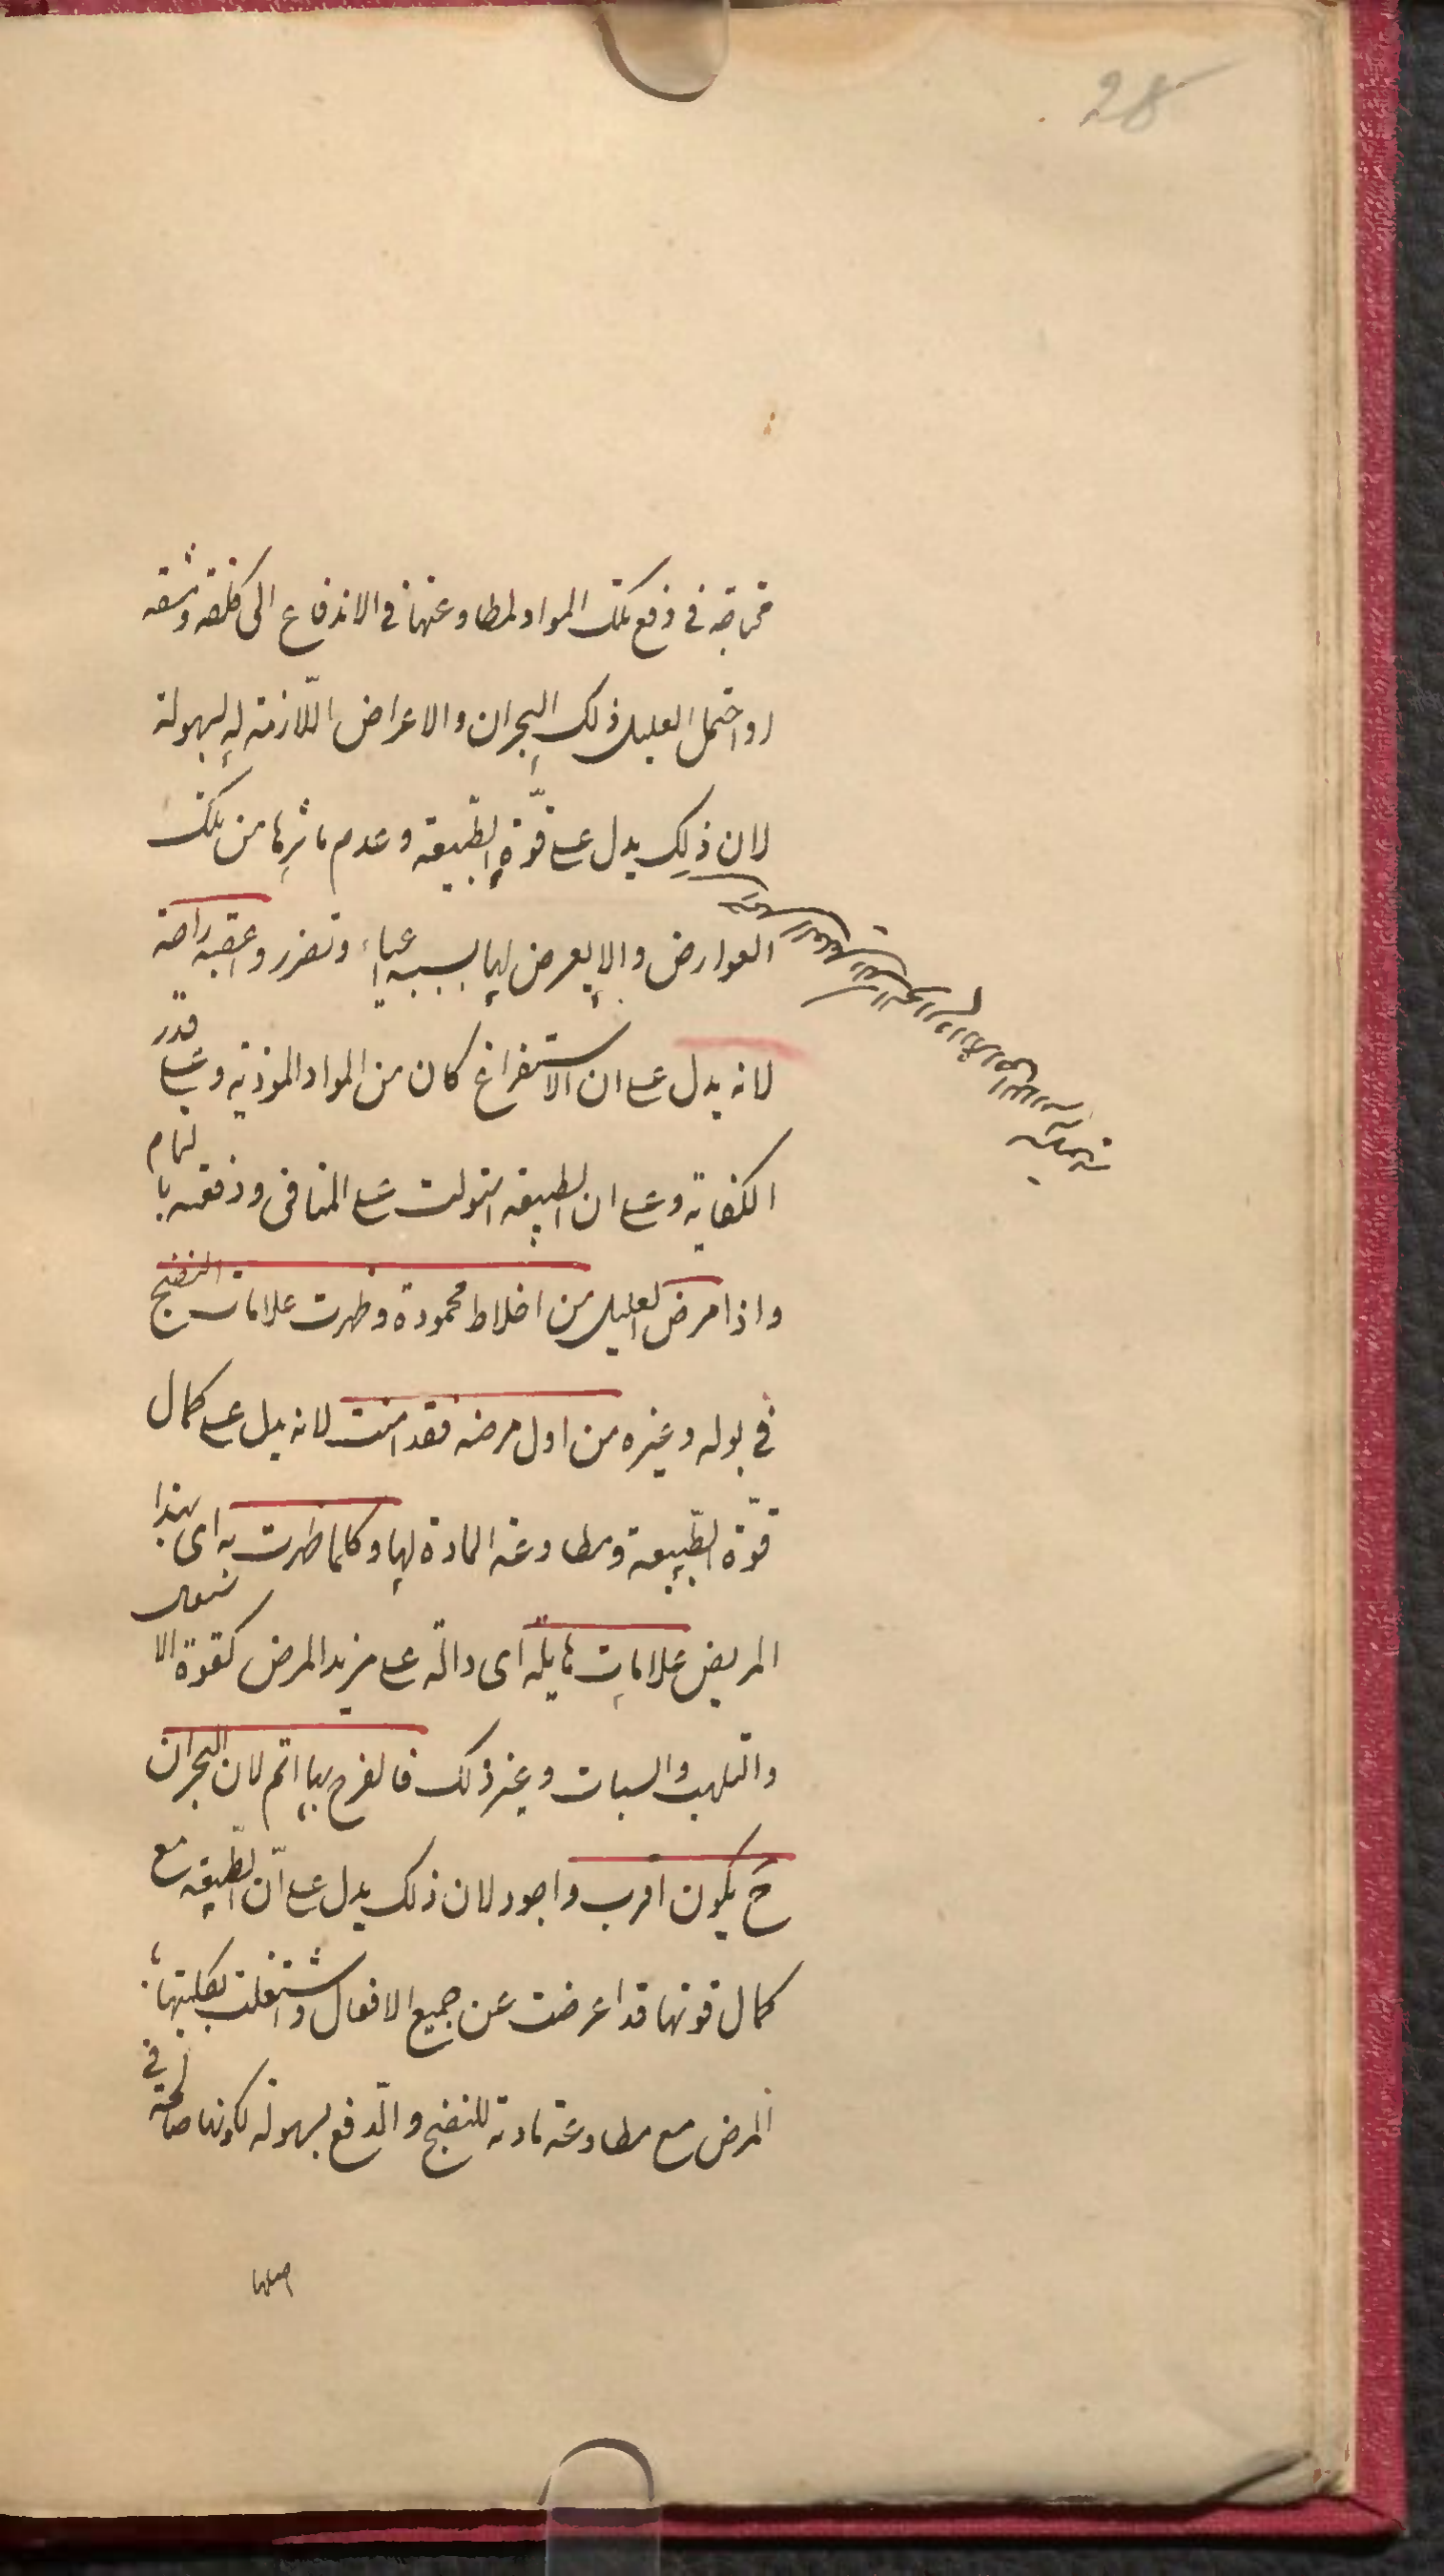 28
محتاجة في دفع تلك المواد لمطاوعتها في الاندفاع الى كلفة ومشقة
او احتمل العليل ذلك البحران والاعراض اللّازمة له بسهولة
لان ذلك يدل على قوّة الطّبيعة وعدم تاثرها من تلك
العوارض والا يعرض لها بسببه اعياء وتضرر واعقبه راحة
لانه يدل على ان الاستفراغ كان من المواد الموذية وعلى قدر
الكفاية وعلى ان الطبيعة استولت على المنافى ودفعته بالتمام
واذا مرض العليل من اخلاط محمودة وظهرت علامات النضج
في بوله وغيره من اول مرضه فقد امنت لانه يدل على كمال
قوّة الطّبيعة ومطاوعة المادة لها وكلما ظهرت به اى بهذا
المريض علامات هايلة اى دالّة على مزيد المرض كقوة الاشتعال
والتلهب والسبات وغير ذلك فالفرح بها اتم لان البحران
ح يكون اقرب واجود لان ذلك يدل على انّ الطّبيعة مع
كمال قوتها قد اعرضت عن جميع الافعال واشتغلت بكليتها
المرض مع مطاوعة مادته للنضج والدّفع بسهولة لكونها صالحة في
اصلها